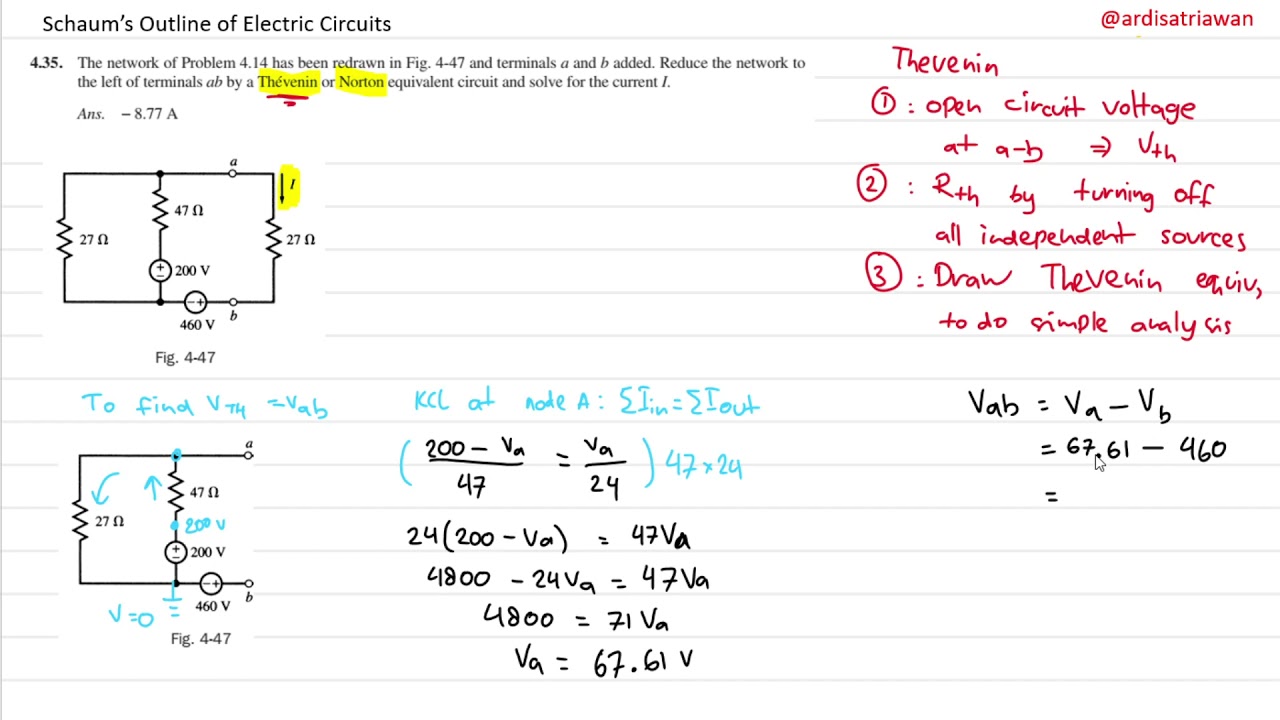 Schaum's Outline of Electric Circuits
@ardisatriawan
4.35. The network of Problem 4.14 has been redrawn in Fig. 4-47 and terminals a and b added. Reduce the network to
the left of terminals ab by a Thévenin or Norton equivalent circuit and solve for the current I.
Ans. – 8.77 A
a
I
47 Ω
27 Ω
27 Ω
+
−
200 V
− +
b
460 V
Fig. 4-47
Thevenin
① : open circuit voltage
at a-b ⇒ Vth
② : Rth by turning off
all independent sources
③ : Draw Thevenin equiv,
to do simple analysis
To find VTH = Vab
a
47 Ω
27 Ω
200 V
+
−
200 V
− +
b
460 V
V=0
Fig. 4-47
KCL at node A: ΣIin = ΣIout
( (200 − Va)/47 = Va/24 ) 47 × 24
24(200 − Va) = 47Va
4800 − 24Va = 47Va
4800 = 71 Va
Va = 67.61 V
Vab = Va − Vb
= 67.61 − 460
=